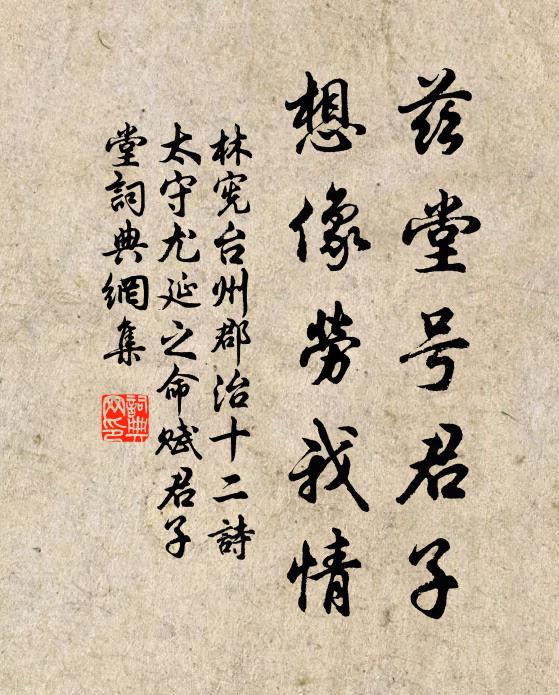 茲堂号君子
想像勞我情
林宪台州郡治十二詩
太守尤延之命赋君子
堂詞典網集
詞典
网印